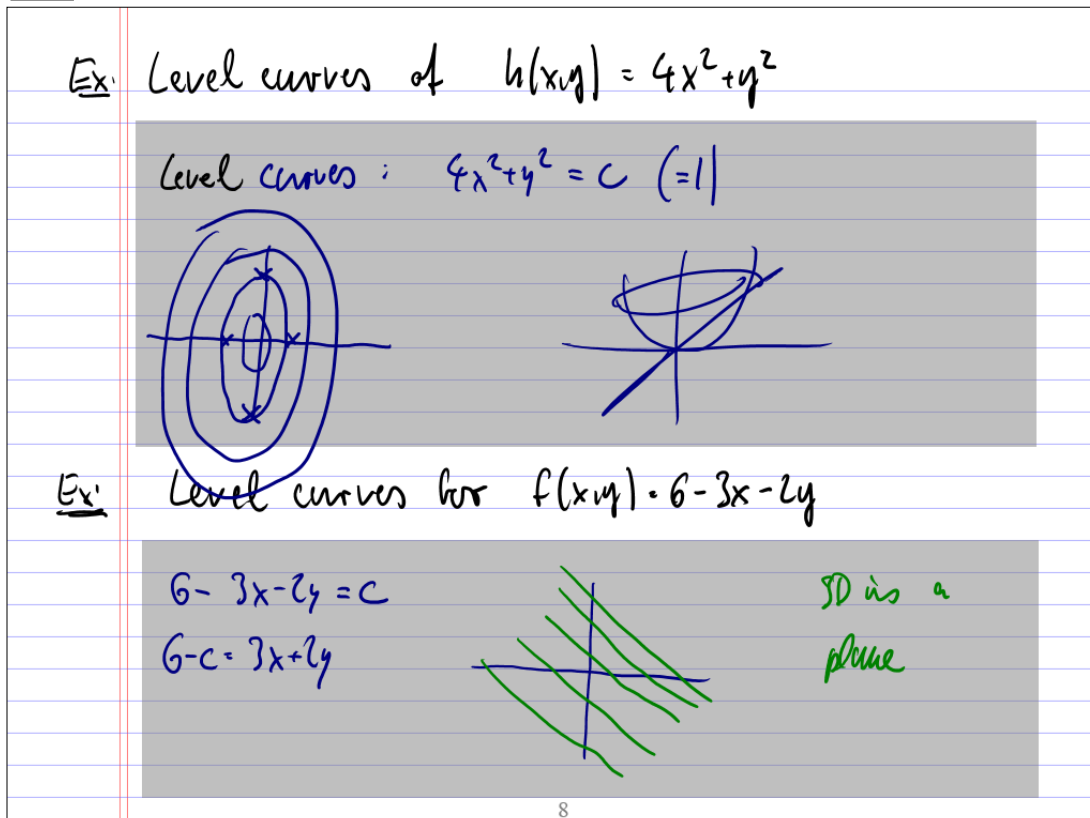 Ex: Level curves of h(x,y) = 4x²+y²
Level curves : 4x²+y² = C (=1)
Ex: Level curves for f(x,y) = 6-3x-2y
6- 3x-2y = C
6-C = 3x+2y
3D is a
plane
8